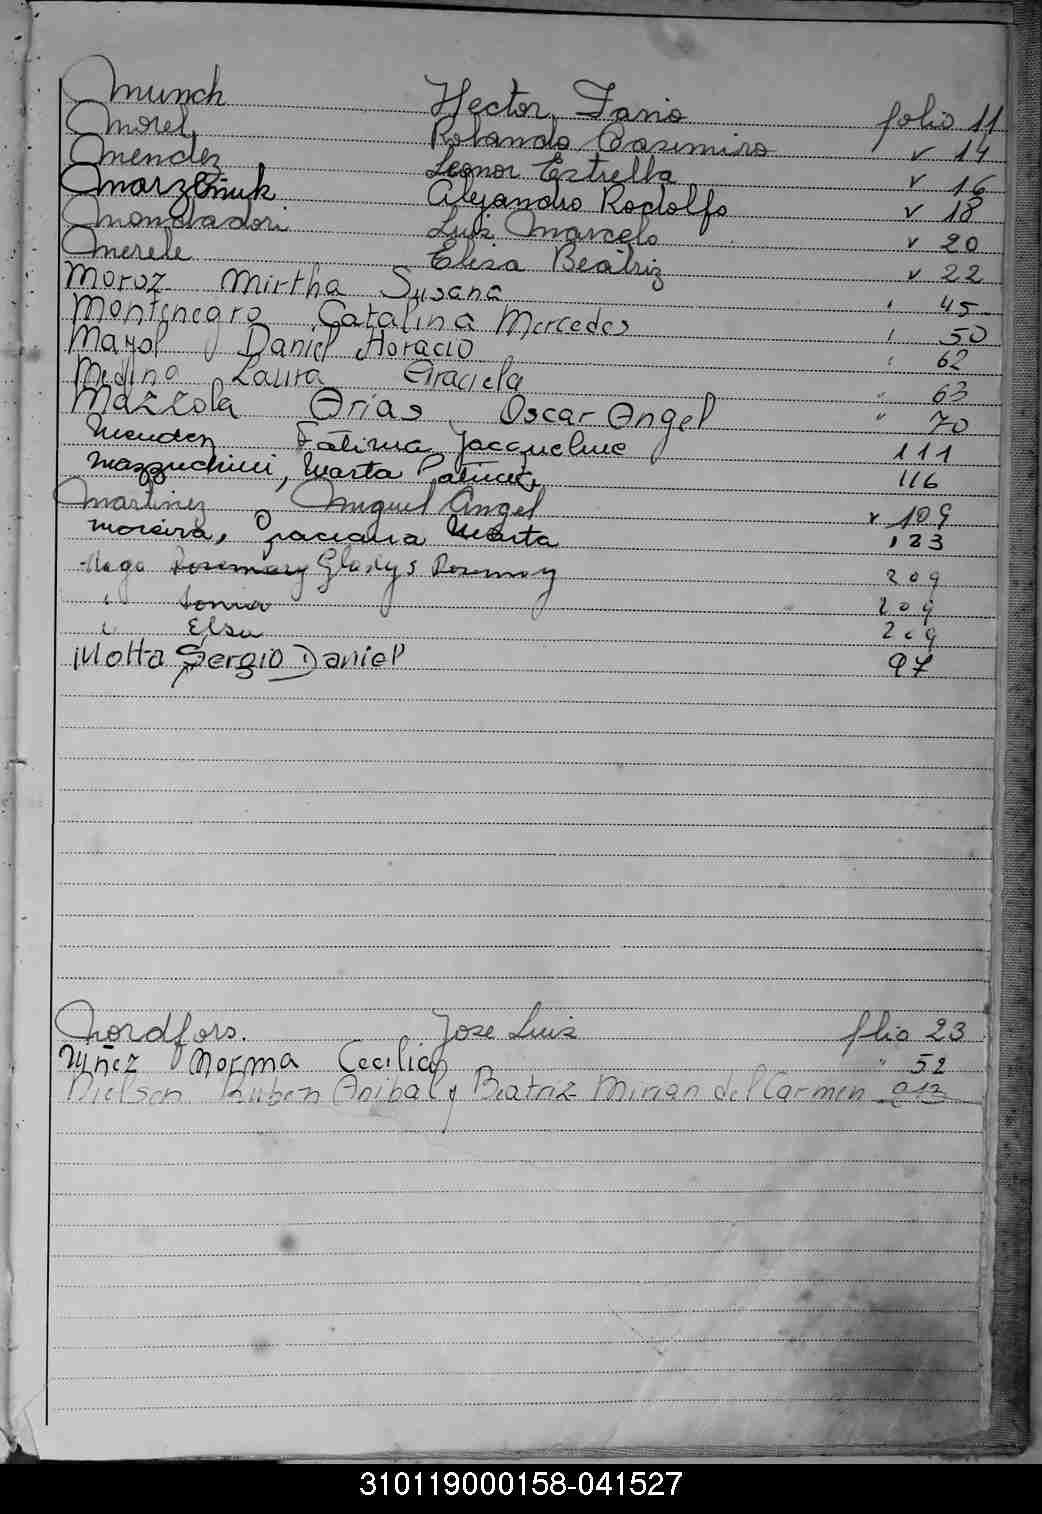 Munch Hector Dario folio 11
Morel Rolando Casimiro " 14
Mendez Leonor Estrella " 16
Alejandro Rodolfo " 18
Mondadori Luis Marcelo " 20
Merele Elisa Beatriz " 22
Moroz Mirtha Susana " 45
Montenegro Catalina Mercedes " 50
Mayol Daniel Horacio " 62
Medina Laura Graciela " 63
Mazzola Arias Oscar Angel " 70
Mendez Fatima Jacqueline 111
Mazzuchini, Marta Patricia 116
Martinez Miguel Angel " 109
Moreira, Graciana Marta 123
Maga Rosemary Gladys Rosemary 209
" Sonia 209
" Elsa 209
Motta Sergio Daniel 97
Nordfors. Jose Luis folio 23
Nuñez Norma Cecilia " 52
Nielsen Ruben Anibal y Beatriz Mirian del Carmen 213
310119000158-041527